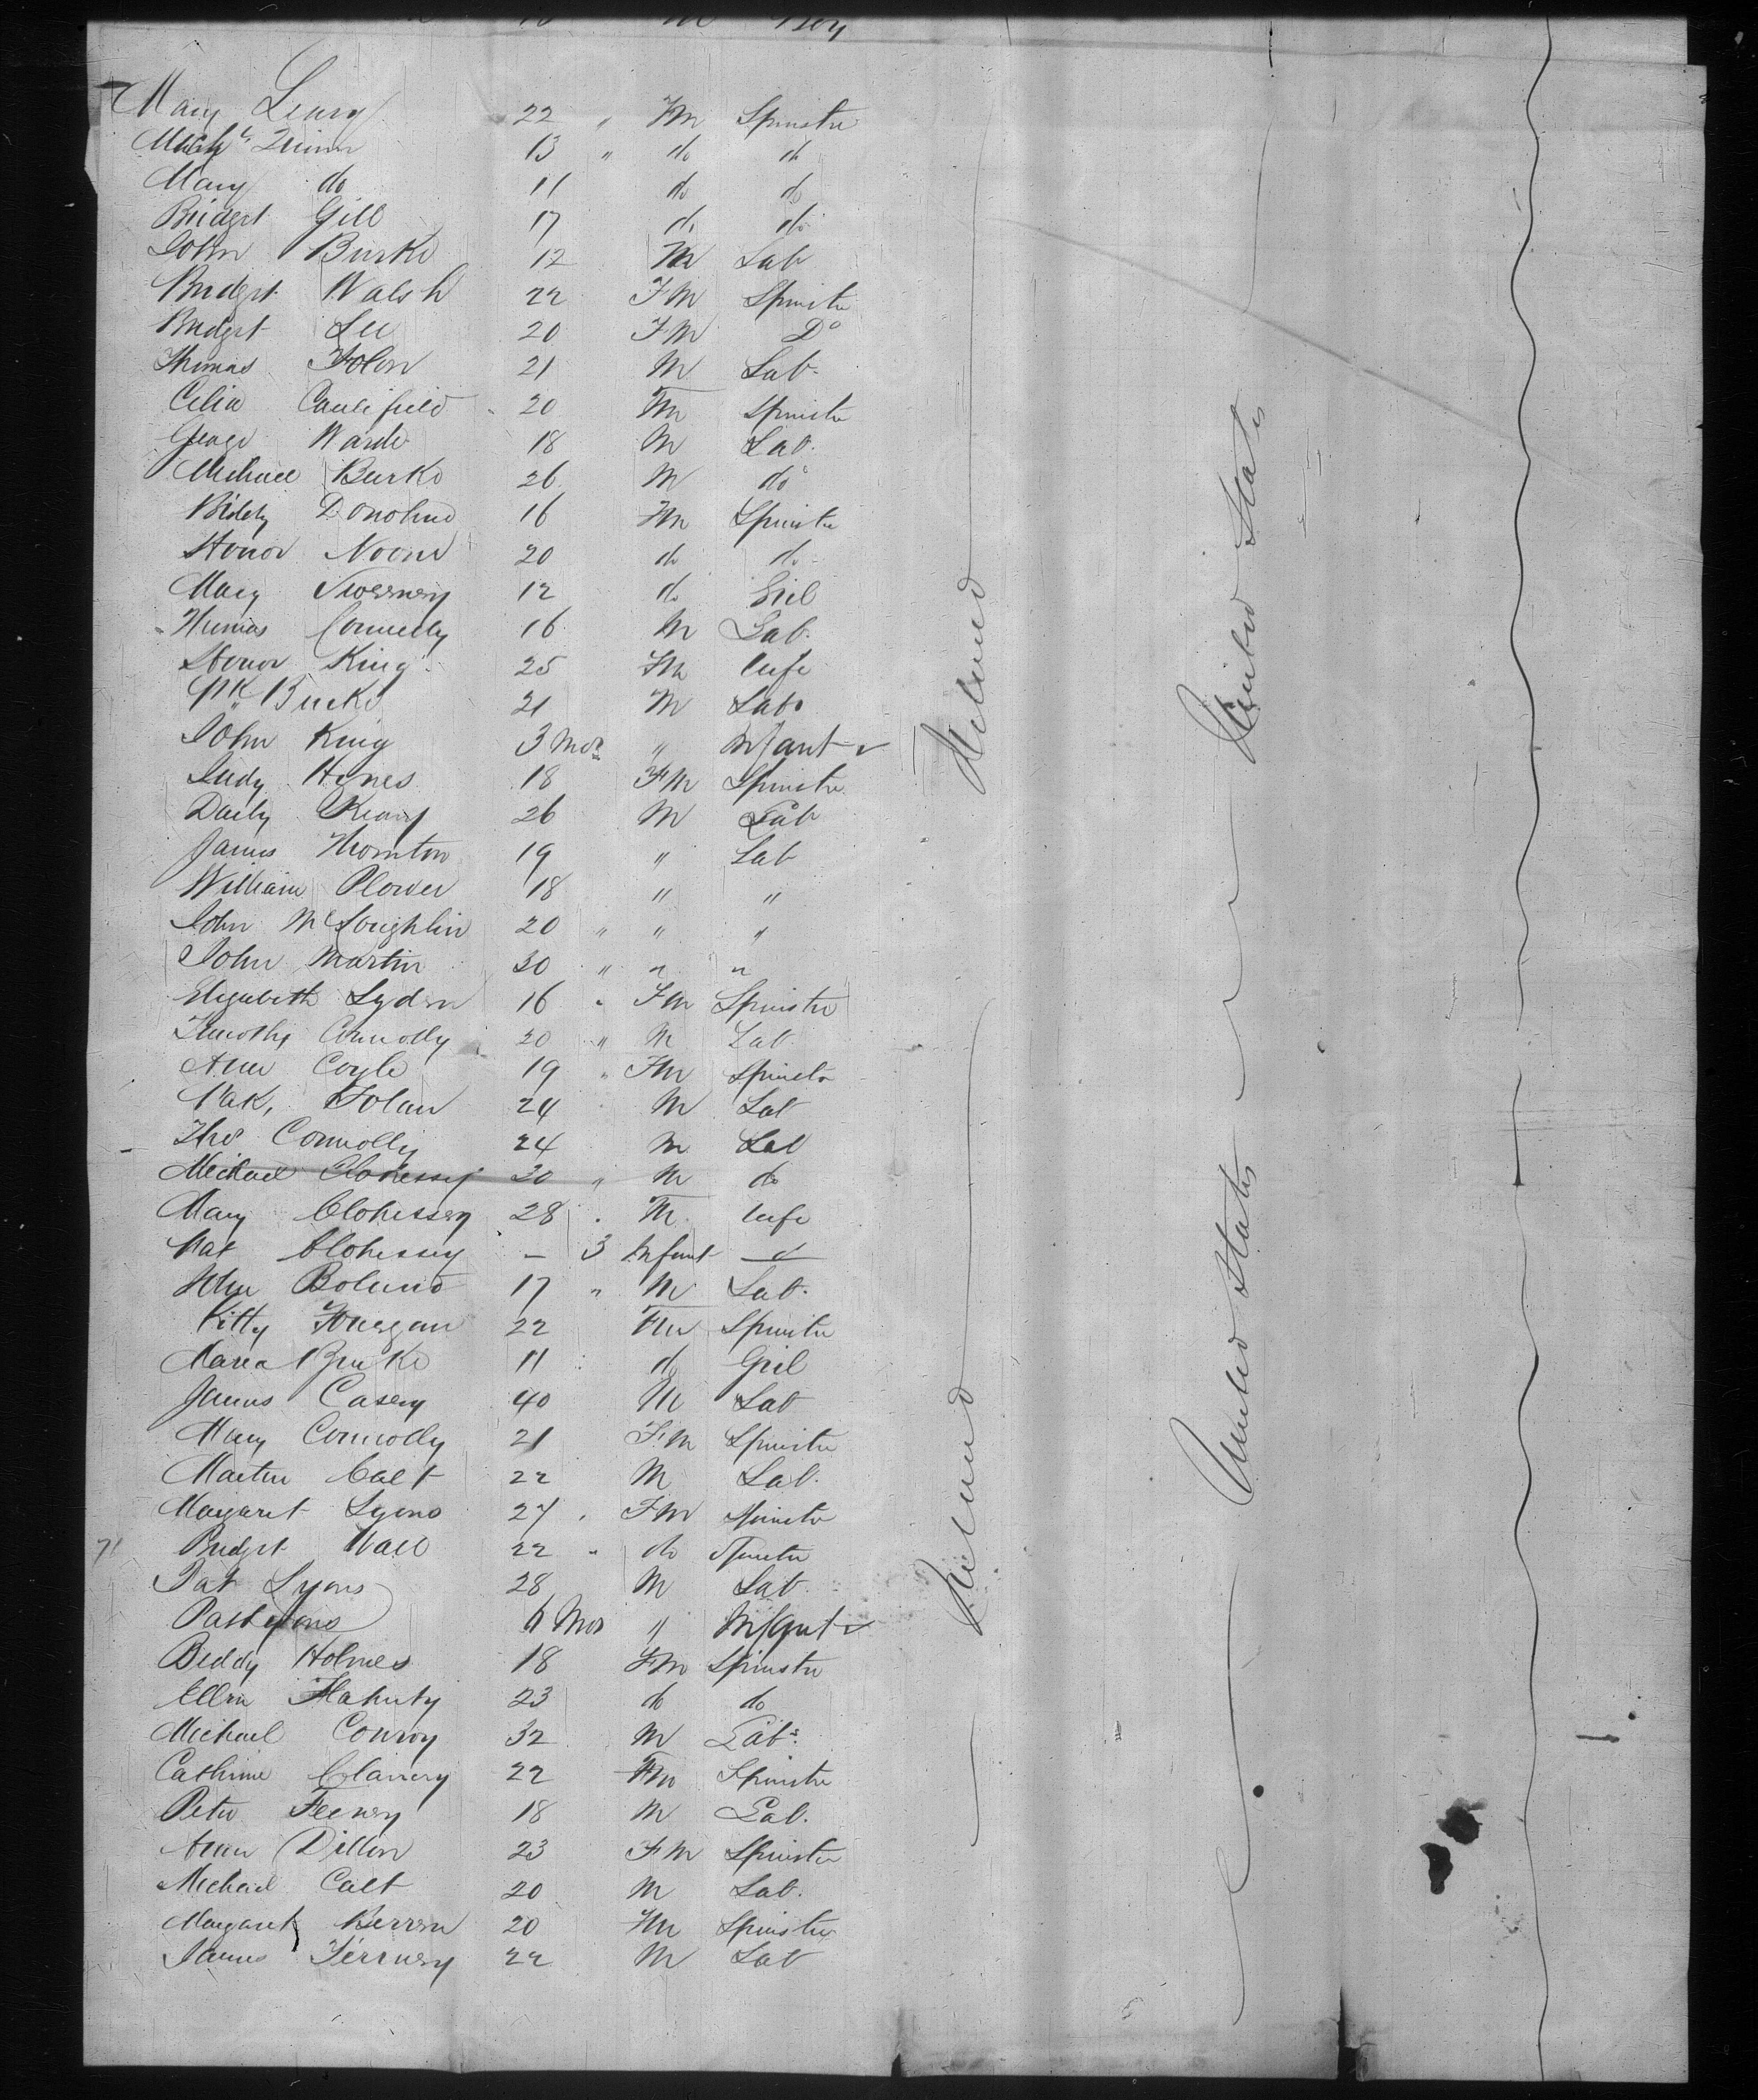 Boy
Mary Leary 22 " Fm Spinster
Mich Quinn 13 " do do
Mary do 11 do do
Bridget Gill 17 do do
John Burke 12 M Lab
Bridget Walsh 22 Fm Spinster
Bridget Lee 20 Fm Do
Thomas Folon 21 M Lab.
Celia Caulifield 20 Fm Spinster
George Warde 18 M Lab.
Michael Burke 26 M do
Biddy Donohue 16 Fm Spinster
Honor Noone 20 do do
Mary Sweeney 12 do Girl
Thomas Connelly 16 M Lab.
Honor King 25 Fm Wife
Burke 21 M Lab.
John King 3 Mos " Infant
Judy Hynes 18 Fm Spinster
Keary 26 M Lab
James Thornton 19 " Lab
William Plower 18 " "
John McLoughlin 20 " " "
John Martin 30 " " "
Elizabeth Lyden 16 " Fm Spinster
Timothy Connolly 20 " M Lab.
Ann Coyle 19 " Fm Spinster
Folan 24 M Lab
Thos Connolly 24 M Lab
Michael Clohessy 30 " M do
Mary Clohessy 28 Fm Wife
Pat Clohessy - 3 Infant
John Boland 17 " M Lab.
Kitty 22 Fm Spinster
Maria Burke 11 do Girl
James Casey 40 M Lab
Mary Connolly 21 Fm Spinster
Martin Calt 22 M Lab.
Margaret Lyons 27 Fm Spinster
71 Bridget Wall 22 " do Spinster
Pat Lyons 28 M Lab.
Pat Lyons 6 Mos " Infant
Biddy Holmes 18 Fm Spinster
Ellen Flaherty 23 do do
Michael Conroy 32 M Lab.
Catherine Clancy 22 Fm Spinster
Peter Feeney 18 M Lab.
Ann Dillon 23 Fm Spinster
Michael Calt 20 M Lab.
Margaret 20 Fm Spinster
James 22 M Lab
Ireland
Ireland
United States
United States